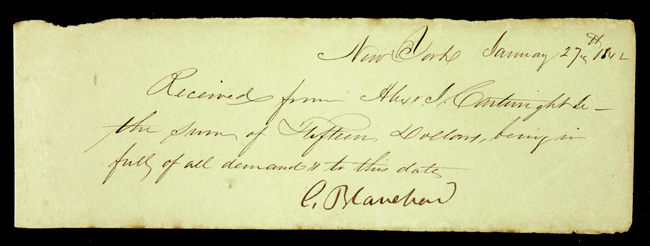 New York January 27th 1842
Received from Alexr J. Cartwright Jr
the sum of Fifteen Dollars, being in
full of all demands to this date
C. Blanchard